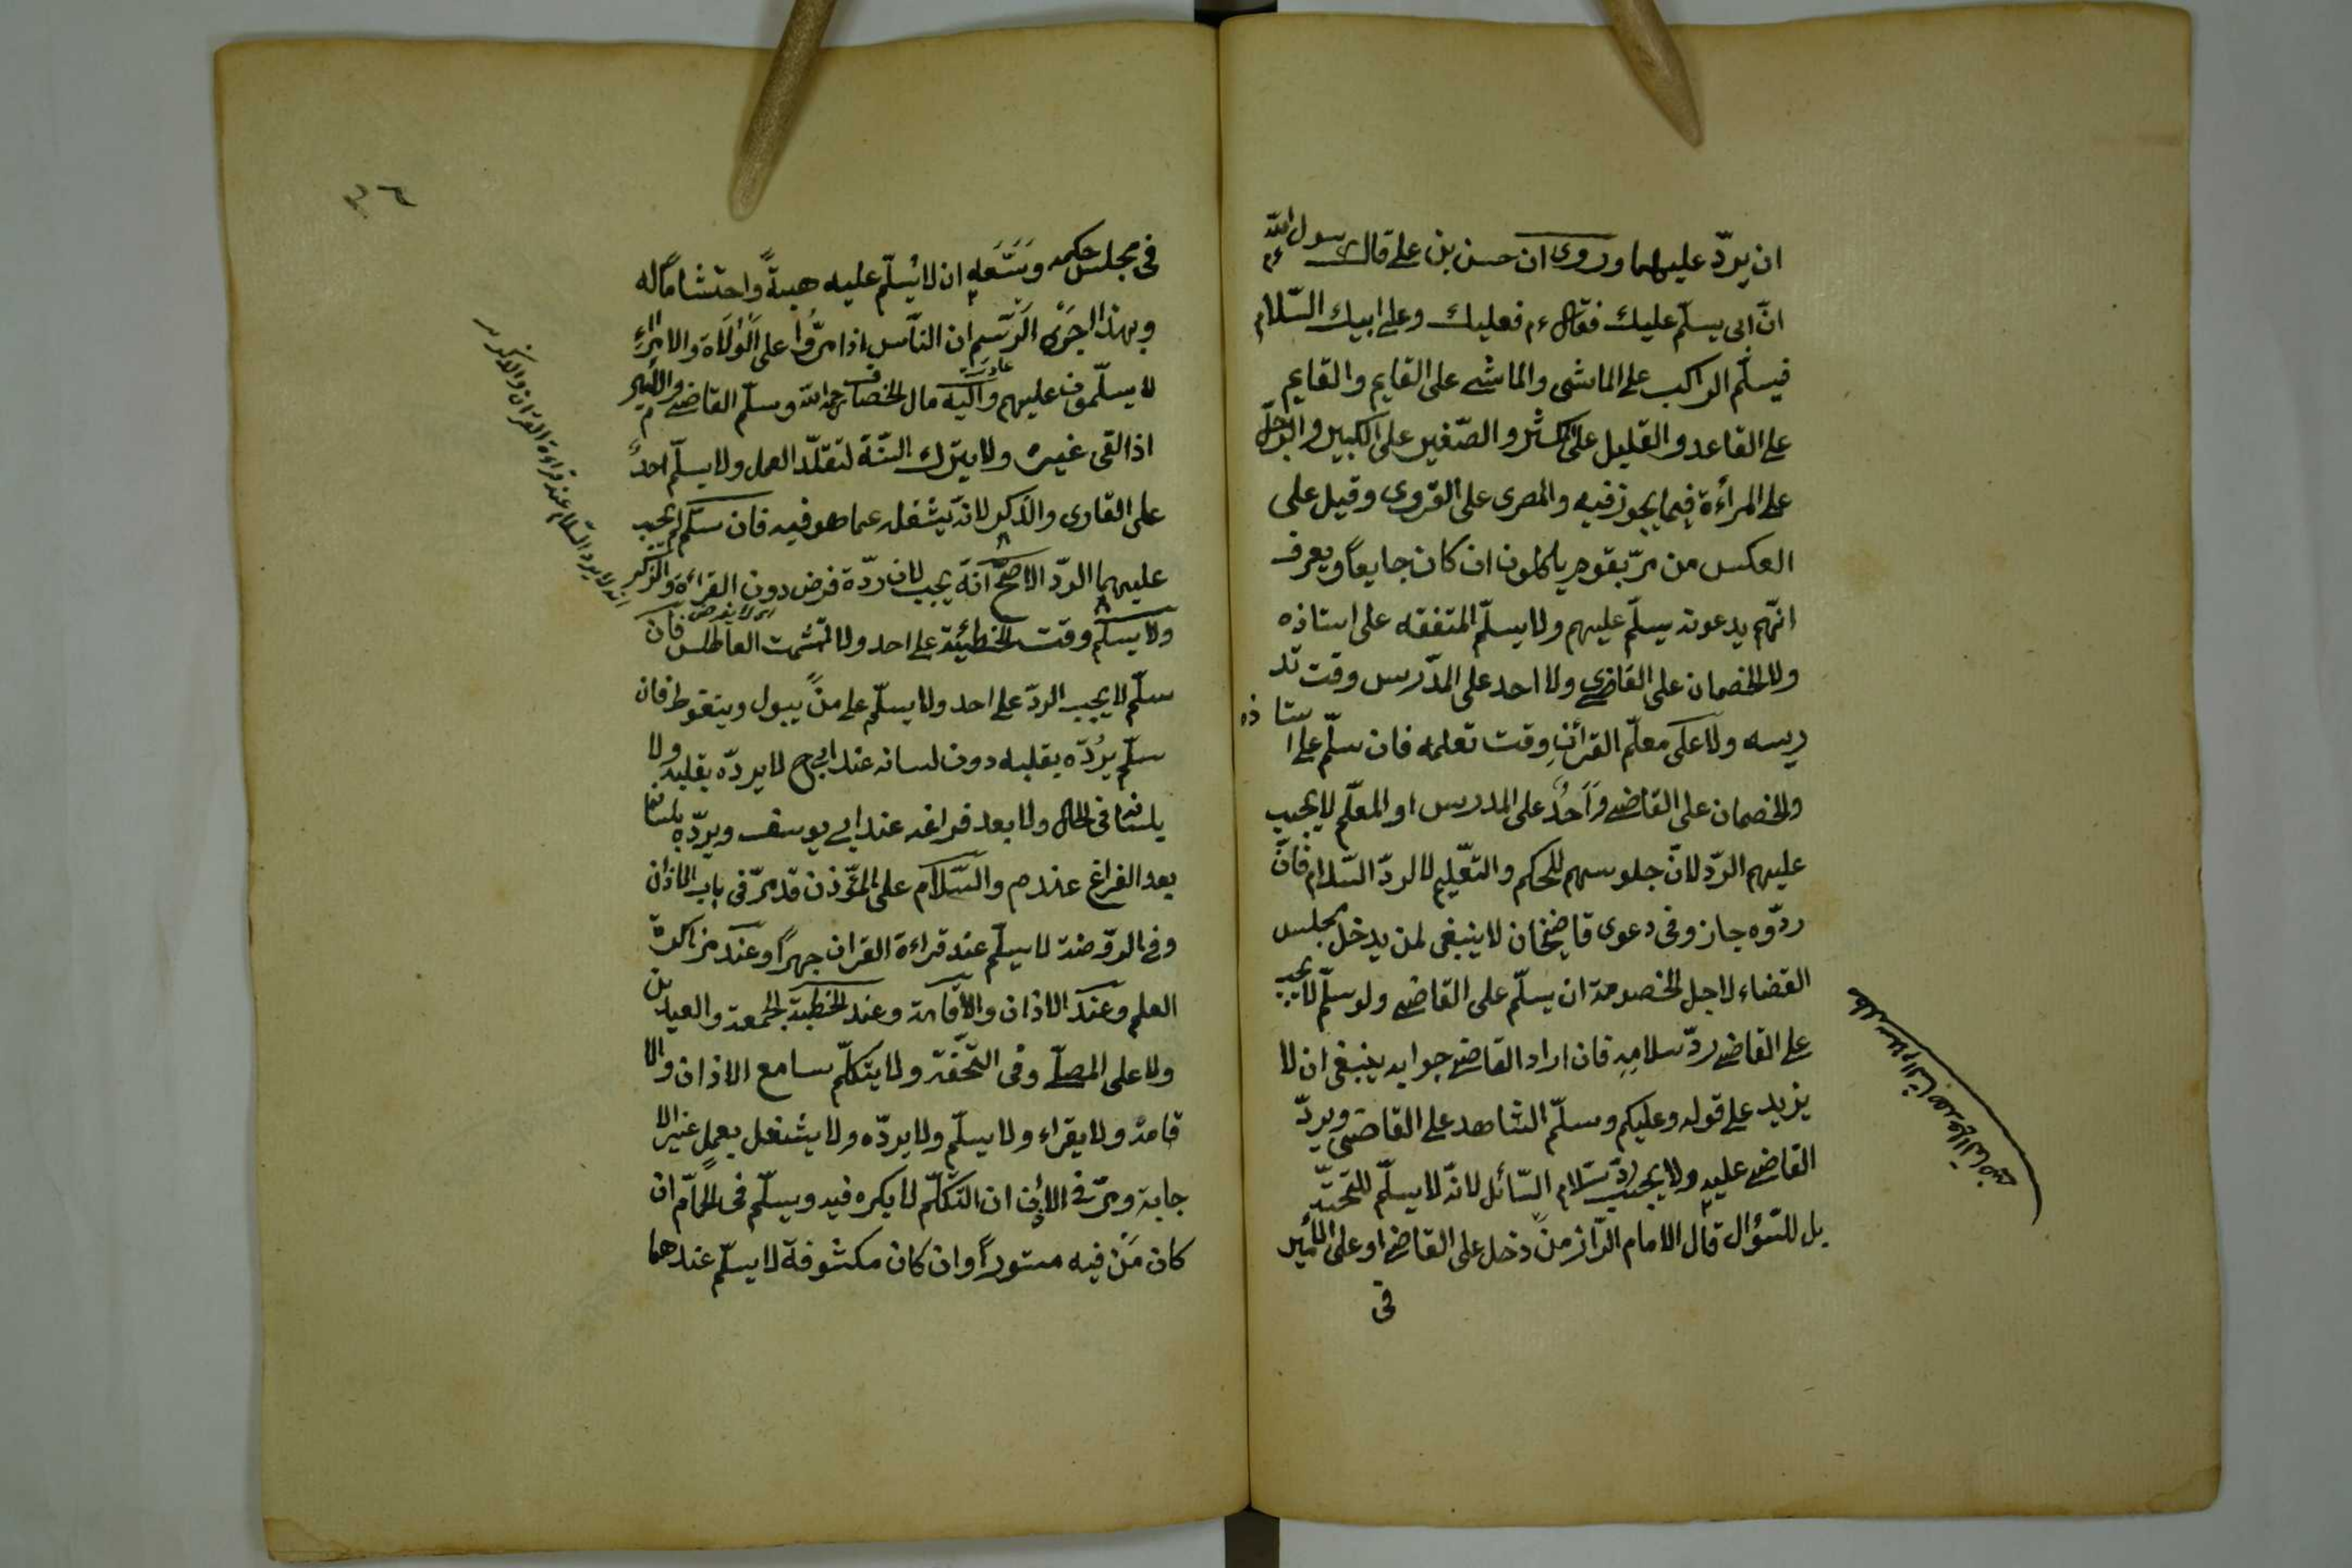 ان يردّ عليهما وروى ان حسن بن علي قال يا رسول الله
انّ ابى يسلّم عليك فقال ءم فعليك وعلى ابيك السّلام
فيسلّم الراكب على الماشى والماشى على القايم والقايم
على القاعد والقليل على الكثير والصّغير على الكبير والرّجل
على المرأة فيما يجوز فيه والمصرى على القروى وقيل على
العكس من مرّ بقوم ياكلون ان كان جايعاً ويعرف
انّهم يدعونه يسلّم عليهم ولا يسلّم المتفقه على استاذه
ولا الخصمان على القاضى ولا احد على المدّرس وقت تد
ريسه ولا على معلّم القرآن وقت تعلمه فان سلّم على استاذه
والخصمان على القاضى واحدٌ على المدرس او المعلّم لا يجب
عليهم الردّ لانّ جلوسهم للحكم والتعّليم لا لردّ السّلام فان
ردّوه جاز وفى دعوى قاضيخان لا ينبغى لمن يدخل مجلس
القضاء لاجل الخصومة ان يسلّم على القاضى ولو سلّم لا يجب
على القاضى ردّ سلامه فان اراد القاضى جوابه ينبغى ان لا
يزيد على قوله وعليكم وسلّم الشاهد على القاضى ويردّ
القاضى عليه ولا يجب ردّ سلام السّائل لانّه لا يسلّم للتحيّة
بل للسّؤال قال الامام الرّاز منْ دخل على القاضى او على الأمير
فى
سلام الشاهد على القاضى
٣٦
فى مجلس حكمه وسَعَه ان لا يُسلّم عليه هيبةً واحتشاماً له
وبهذا جَرَى الرّسم ان النّاس اذا مرّوا على الوُلَاة والامراء
لا يسلّمون عليهم واليه مال الخصاف رحمه الله وسلّم القاضى والأمير
اذا لقى غيره ولا يترك السّنة لتقلّد العمل ولا يسلّم احدٌ
على القارى والذّكر لانه يشغله عما هو فيه فان سلّم لم يجب
عليهما الردّ الاصحّ انّه يجب لان ردّه فرض دون القراءة والذّكر
ولا يسلّم وقت الخطبئة على احد ولا تشمت العاطس فان
سلّم لا يجب الردّ على احد ولا يسلّم على منْ يبول ويتغوط فان
سلّم يُردّه بقلبه دون لسانه عند ابى ح لا يردّه بقلبه ولا
بلسانه فى الحال ولا بعد فراغه عند ابى يوسف ويردّه بلسانه
بعد الفراغ عند م والسّلام على المؤّذن قد مرّ فى باب الاذان
وفى الروضة لا يسلّم عند قراءة القران جهراً وعند مذاكرة
العلم وعند الاذان والاقامة وعند الخطبة الجمعة والعيدين
ولا على المصلّى وفى التّحفة ولا يتكلّم سامع الاذان والا
قامة ولا يقراء ولا يسلّم ولا يردّه ولا يشتغل بعملٍ غير الا
جابة ومرّ فى الاذن ان التكلّم لا يكره فيه ويسلّم فى الحمّام ان
كان مَنْ فيه مستوراً وان كان مكشوفة لا يسلّم عندهما
انه لا يرد السّلام عند قراءة القران والذكر